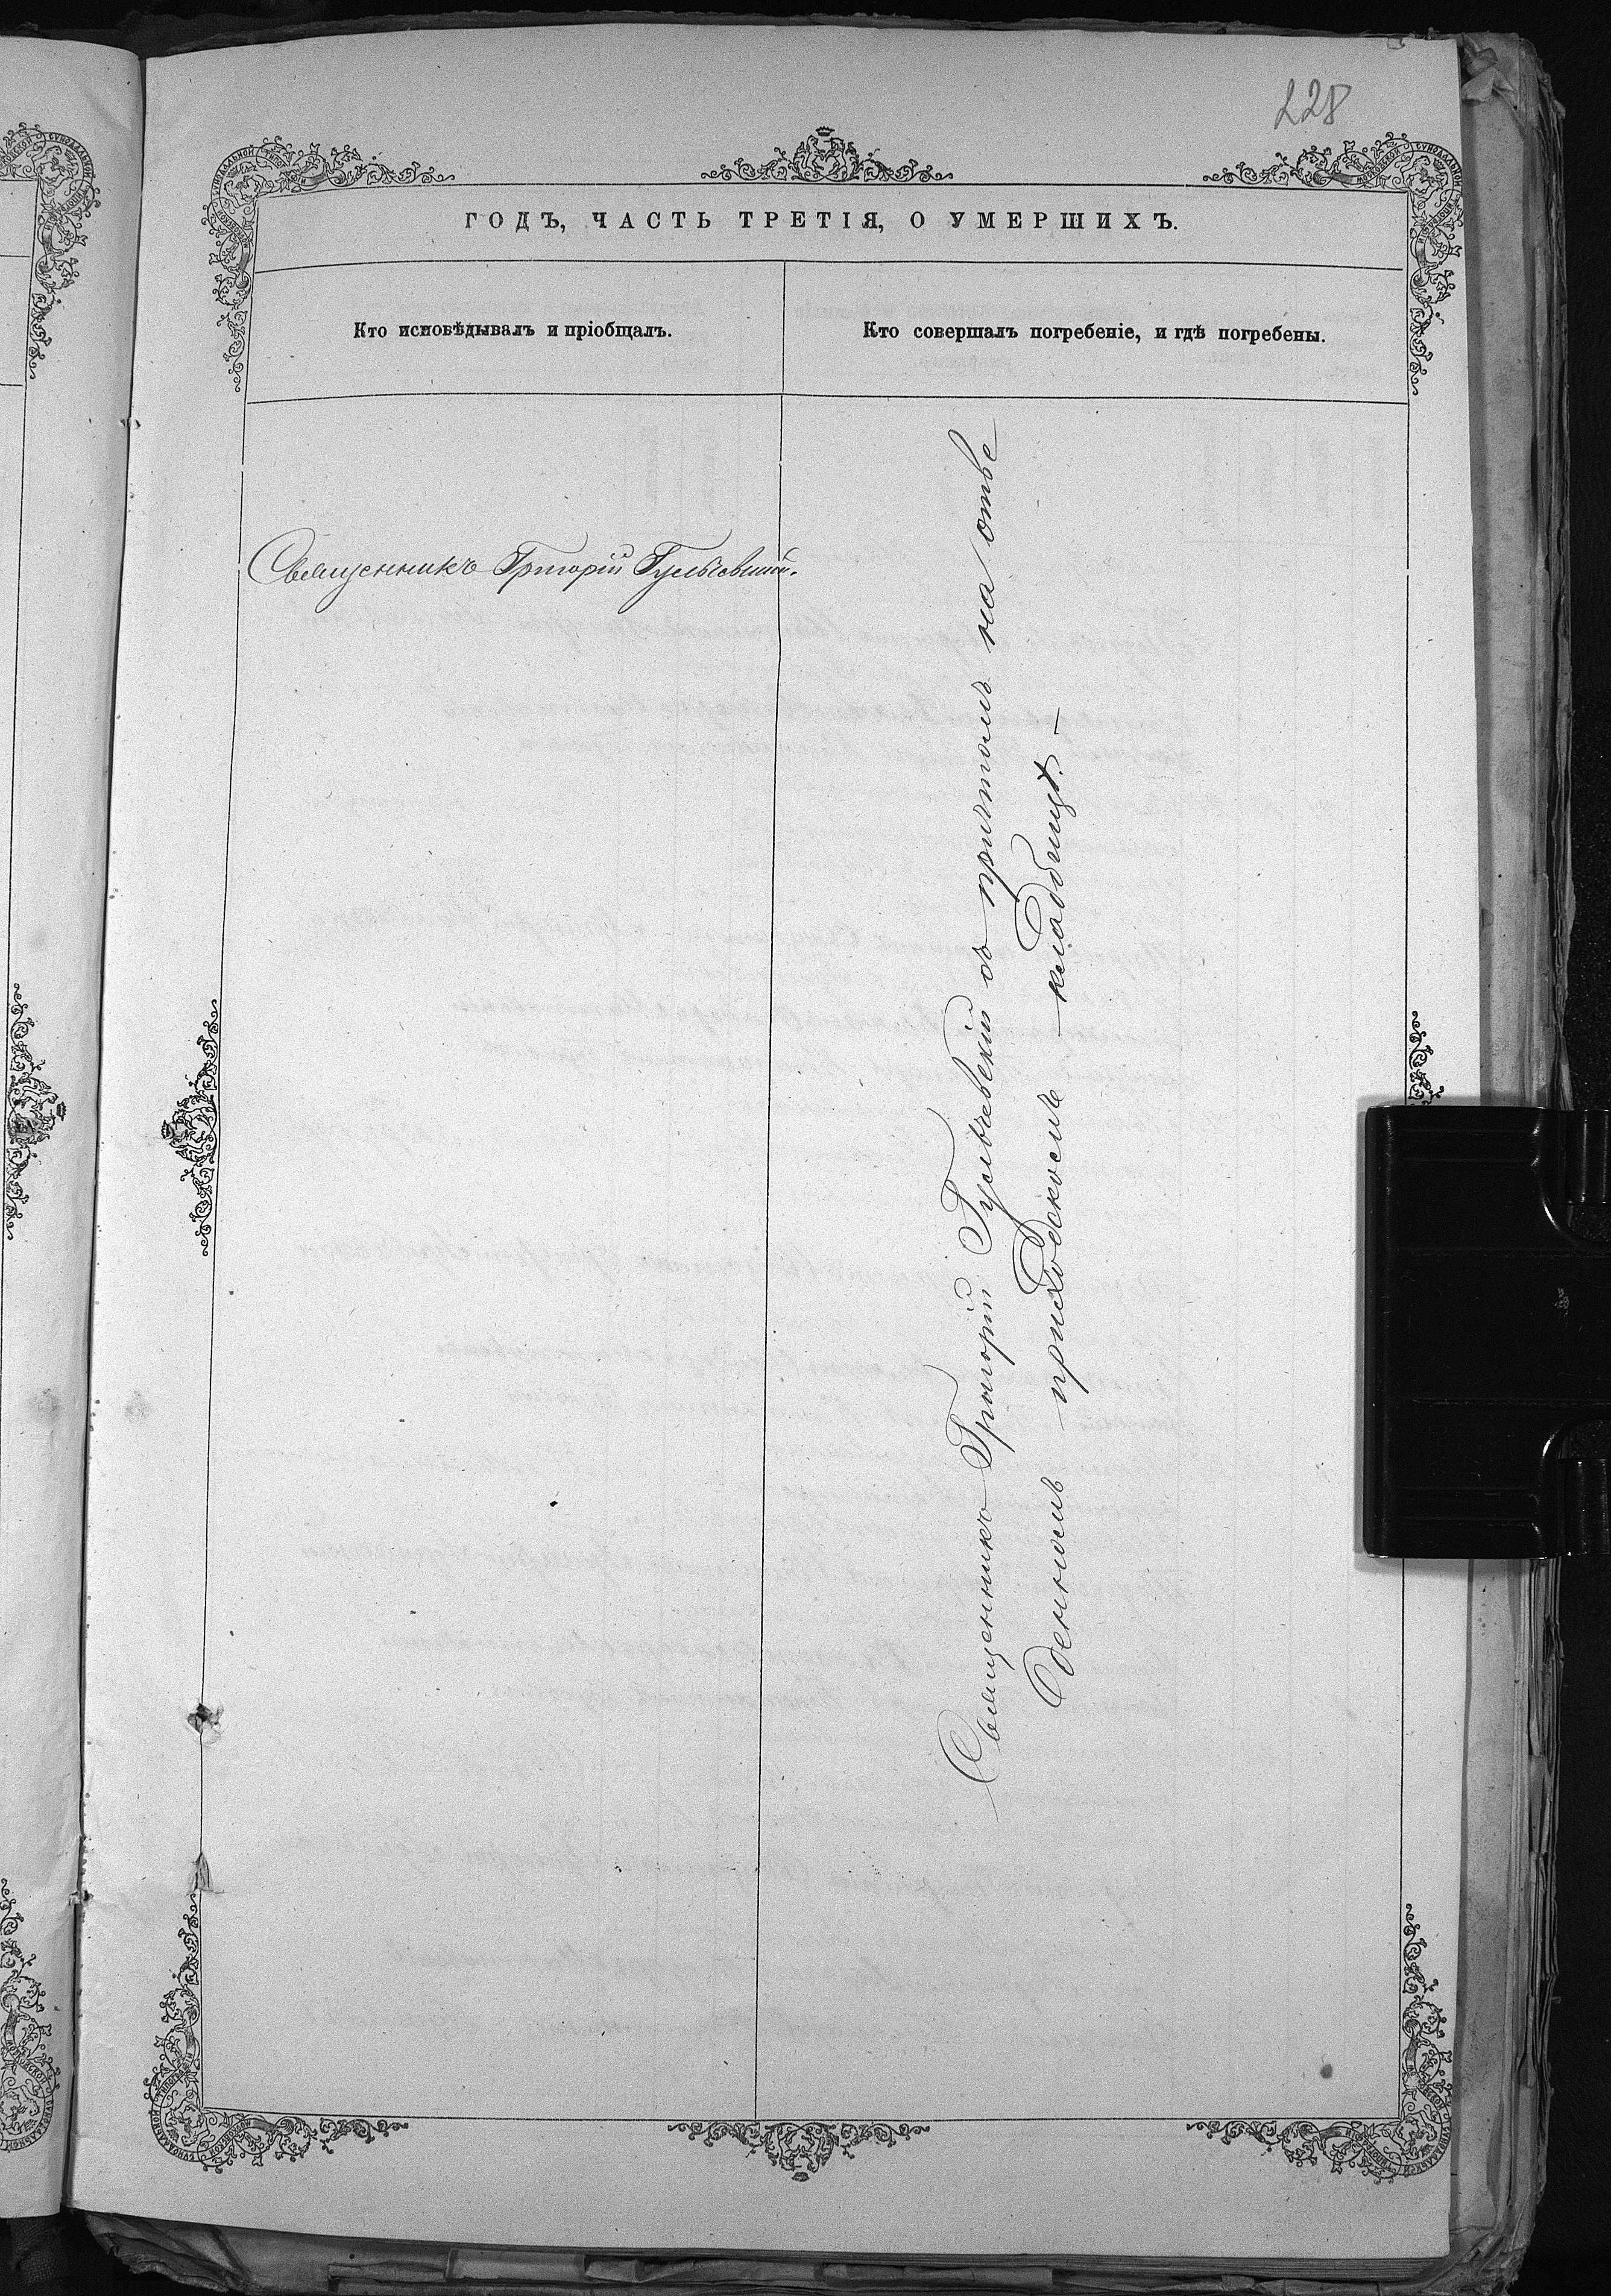 228
ГОДЪ, ЧАСТЬ ТРЕТІЯ, О УМЕРШИХЪ.
Кто исповѣдывалъ и пріобщалъ.
Кто совершалъ погребеніе, и гдѣ погребены.
Священникъ Григорій Гульчевшій.
Священникъ Григорій Гульчевскій съ причтомъ на отве
денномъ приходскомъ кладбищѣ.—